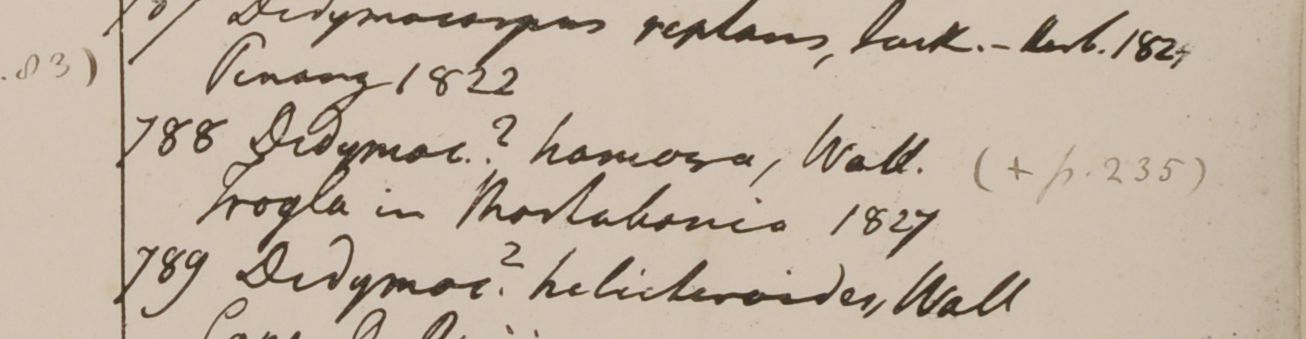 787 Didymocarpus reptans, Jack. - Herb. 1824
.83)
Penang 1822
788 Didymoc.? hamosa, Wall. (+ p. 235)
Trogla in Martabania 1827
789 Didymoc.? helicteroides, Wall